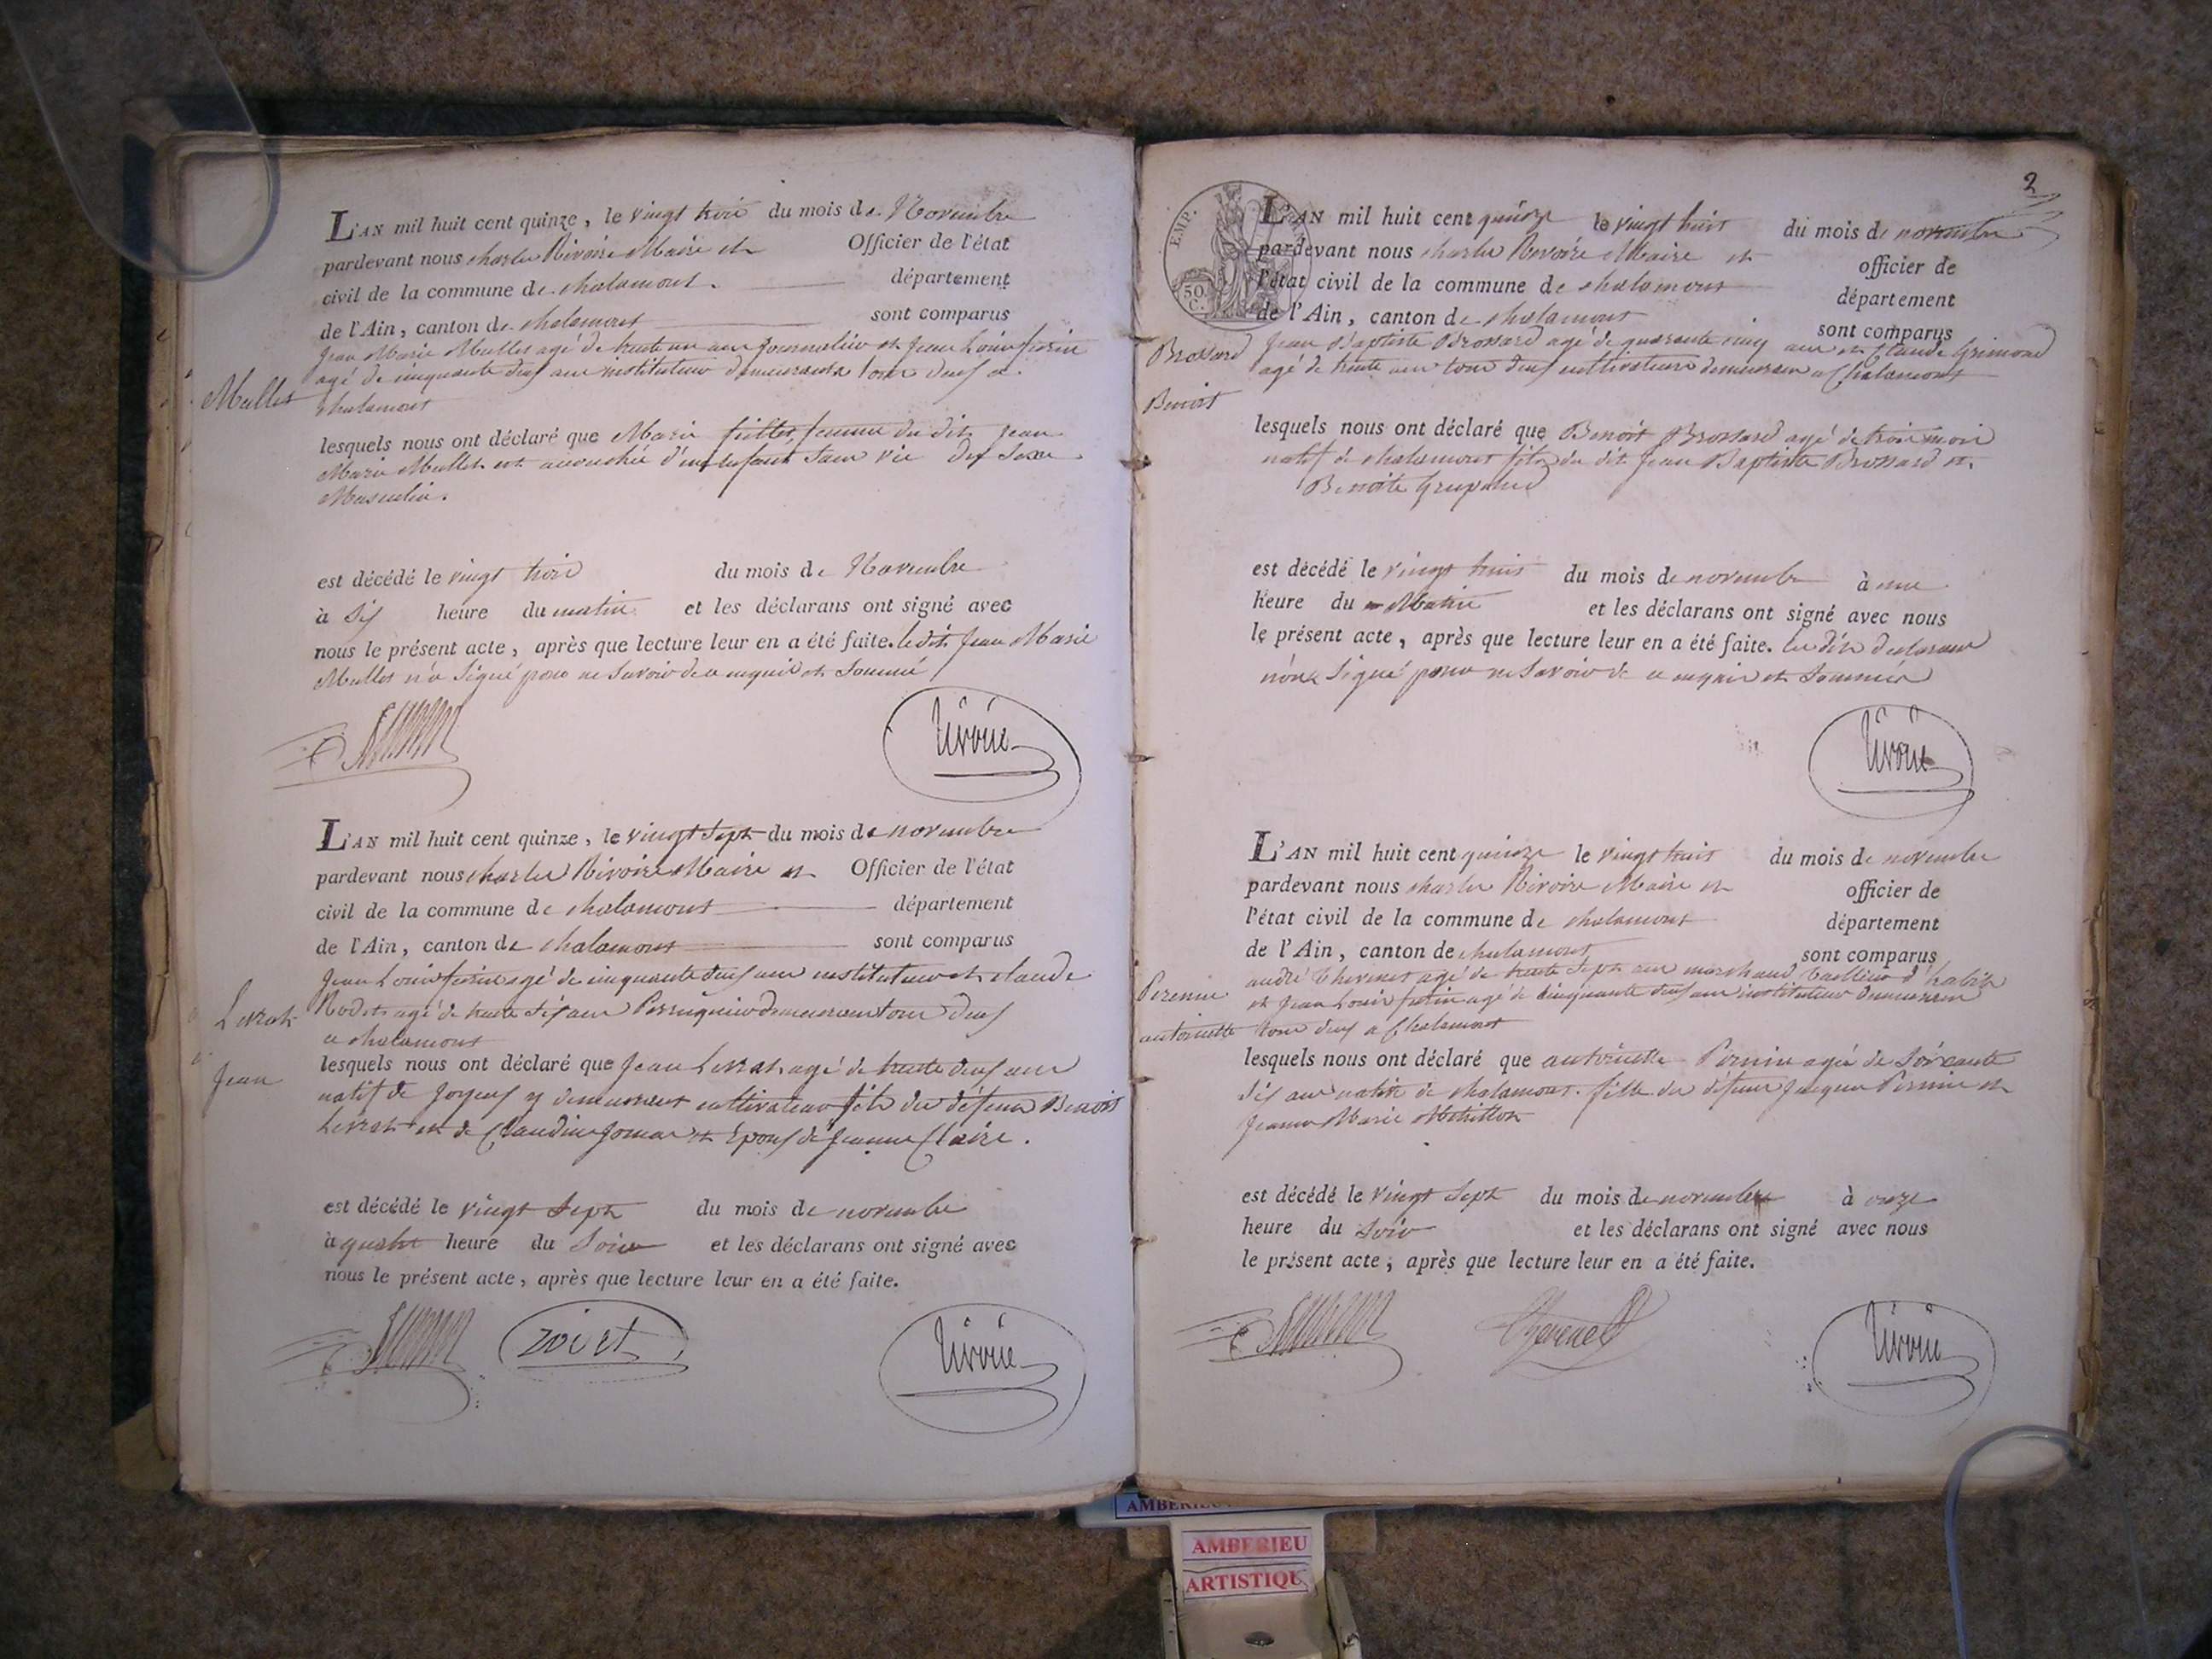 L'AN mil huit cent quinze, le vingt trois du mois de Novembre
pardevant nous charles Rivoire Maire et Officier de l'état
civil de la commune de chalamont département
de l'Ain, canton de chalamont sont comparus
Jean Marie Mullet agé de trente un ans journalier et Jean Louis
agé de cinquante deux ans instituteur demeurants tous deux a
Mullet
chalamont
lesquels nous ont déclaré que Marie femme du dit Jean
Marie Mullet est accouchée d'un enfant sans vie du Sexe
Masculin.
est décédé le vingt trois du mois de Novembre
à Six heure du matin et les déclarans ont signé avec
nous le présent acte, après que lecture leur en a été faite. le dit Jean Marie
Mullet n'a Signé pour ne Savoir de ce enquis et Sommé
Rivoire
L'AN mil huit cent quinze, le vingt Sept du mois de novembre
pardevant nous charles Rivoire Maire et Officier de l'état
civil de la commune de chalamont département
de l'Ain, canton de chalamont sont comparus
Jean Louis agé de cinquante deux ans instituteur et claude
Livrat
Rodet agé de trente Six ans Perruquier demeurant tous deux
a chalamont
Jean
lesquels nous ont déclaré que Jean Livrat agé de trente deux ans
natif de Joyeux y demeurant cultivateur fils du défunt Benoit
Livrat et de Claudine et Epoux de Jeanne Claire.
est décédé le vingt Sept du mois de novembre
à quatre heure du Soir et les déclarans ont signé avec
nous le présent acte, après que lecture leur en a été faite.
Rivoire
2
EMP.
50 C.
L'AN mil huit cent quinze le vingt huit du mois de novembre
pardevant nous charles Rivoire Maire et officier de
l'état civil de la commune de chalamont département
de l'Ain, canton de chalamont sont comparus
Brossard
Jean Baptiste Brossard agé de quarante cinq ans et Claude Grimond
agé de trente ans tous deux cultivateurs demeurant a Chalamont
Benoit
lesquels nous ont déclaré que Benoit Brossard agé de trois mois
natif de chalamont fils du dit Jean Baptiste Brossard et
Benoite
est décédé le vingt huit du mois de novembre à une
heure du Matin et les déclarans ont signé avec nous
le présent acte, après que lecture leur en a été faite. les dits declarans
n'ont Signé pour ne Savoir de ce enquis et Sommés
Rivoire
L'AN mil huit cent quinze le vingt huit du mois de novembre
pardevant nous charles Rivoire Maire et officier de
l'état civil de la commune de chalamont département
de l'Ain, canton de chalamont sont comparus
Pernin
andré Thevenet agé de trente Sept ans marchand Tailleur d'habits
et Jean Louis agé de cinquante deux ans instituteur demeurant
antoinette
tous deux a Chalamont
lesquels nous ont déclaré que antoinette Pernin agée de Soixante
Six ans native de chalamont fille du défunt Jacques Pernin et
Jeanne Marie
est décédé le vingt Sept du mois de novembre à onze
heure du Soir et les déclarans ont signé avec nous
le présent acte, après que lecture leur en a été faite.
Thevenet
Rivoire
AMBERIEU
AMBERIEU
ARTISTIQUE